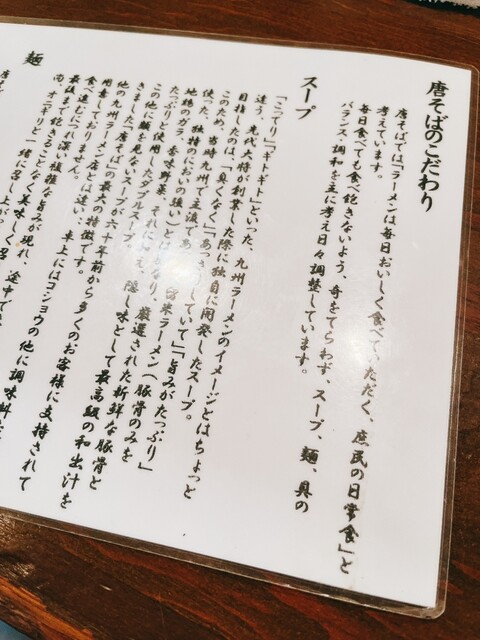 唐そばのこだわり
唐そばでは「ラーメンは毎日おいしく食べていただく、庶民の日常食」と
考えています。
毎日食べても食べ飽きないよう、奇をてらわず、スープ、麺、具の
バランス、調和を主に考え日々調整しています。
スープ
「こってり」「ギトギト」といった、九州ラーメンのイメージとはちょっと
違う、先代大将が創業した際に独自に開発したスープ。
目指したのは、「臭くなく」「あっさりしていて」「旨みがたっぷり」
このため、当時九州で主流であ 留米ラーメン（豚骨のみを
使った、独特のにおいの強い）とは なり、厳選された新鮮な豚骨と
地鶏のガラ、香味野菜、それに え、隠し味として最高級の和出汁を
たっぷり使用したダブルスープ
この他に類を見ないスープが六十年前から多くのお客様に支持されて
きました「唐そば」の最大の特徴です。
他の九州ラーメン店とは違い、卓上にはコショウの他に調味料
用意しておりません。
食べ進むにつれ深い複雑な旨みが現れ、途中で
最後まで飽きることなく美味しく召
尚、オニギリと一緒に召し上が
麺
唐そ